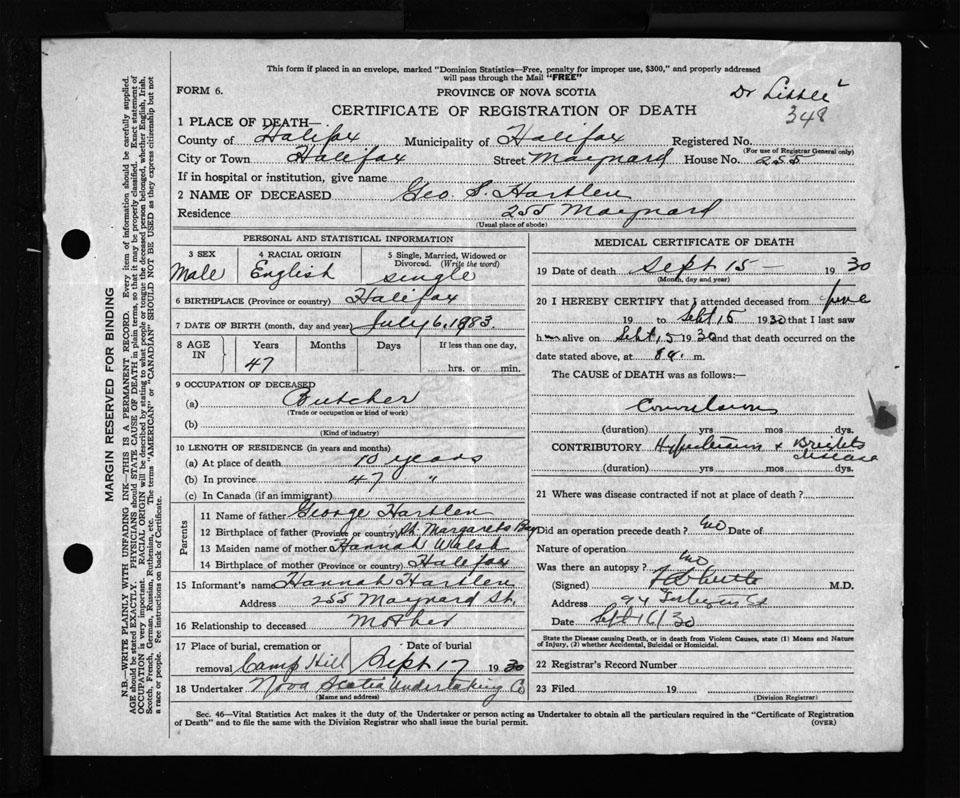 This form if placed in an envelope, marked "Dominion Statistics—Free, penalty for improper use, $300," and properly addressed
will pass through the Mail "FREE"
FORM 6.
PROVINCE OF NOVA SCOTIA
Dr Little
348
CERTIFICATE OF REGISTRATION OF DEATH
1 PLACE OF DEATH—
County of Halifax Municipality of Halifax Registered No.
(For use of Registrar General only)
City or Town Halifax Street Maynard House No. 255
If in hospital or institution, give name
2 NAME OF DECEASED Geo. S. Hartlen
Residence 255 Maynard
(Usual place of abode)
PERSONAL AND STATISTICAL INFORMATION
3 SEX 4 RACIAL ORIGIN 5 Single, Married, Widowed or Divorced. (Write the word)
Male English single
6 BIRTHPLACE (Province or country) Halifax
7 DATE OF BIRTH (month, day and year) July 6, 1983.
8 AGE IN Years Months Days If less than one day,
47 hrs. or min.
9 OCCUPATION OF DECEASED
(a) Butcher
(Trade or occupation or kind of work)
(b)
(Kind of industry)
10 LENGTH OF RESIDENCE (in years and months)
(a) At place of death 10 years
(b) In province 47 "
(c) In Canada (if an immigrant)
Parents
11 Name of father George Hartlen
12 Birthplace of father (Province or country) St. Margarets Bay
13 Maiden name of mother Hannah Walsh
14 Birthplace of mother (Province or country) Halifax
15 Informant's name Hannah Hartlen
Address 255 Maynard St.
16 Relationship to deceased Mother
17 Place of burial, cremation or removal Camp Hill Date of burial Sept 17 1930
18 Undertaker Nova Scotia Undertaking Co
(Name and address)
MEDICAL CERTIFICATE OF DEATH
19 Date of death Sept 15 — 1930
(Month, day and year)
20 I HEREBY CERTIFY that I attended deceased from June
19 to Sept 15 1930 that I last saw
h im alive on Sept 15 1930 and that death occurred on the
date stated above, at 8 a. m.
The CAUSE of DEATH was as follows:—
Convulsions
(duration) yrs mos dys.
CONTRIBUTORY Hypertension & Brights disease
(duration) yrs. mos dys.
21 Where was disease contracted if not at place of death?
Did an operation precede death? No Date of
Nature of operation
Was there an autopsy? No
(Signed) M.D.
Address 94
Date Sept 16/30
State the Disease causing Death, or in death from Violent Causes, state (1) Means and Nature
of Injury, (2) whether Accidental, Suicidal or Homicidal.
22 Registrar's Record Number
23 Filed 19
(Division Registrar)
Sec. 46—Vital Statistics Act makes it the duty of the Undertaker or person acting as Undertaker to obtain all the particulars required in the "Certificate of Registration
of Death" and to file the same with the Division Registrar who shall issue the burial permit.
(OVER)
MARGIN RESERVED FOR BINDING
N.B.—WRITE PLAINLY WITH UNFADING INK—THIS IS A PERMANENT RECORD. Every item of information should be carefully supplied.
AGE should be stated EXACTLY. PHYSICIANS should STATE CAUSE OF DEATH in plain terms, so that it may be properly classified. Exact statement of
OCCUPATION is very important. RACIAL ORIGIN will be described by stating to what people or tongue the deceased person belonged, whether English, Irish,
Scotch, French, German, Russian, Ruthenian, etc. The terms "AMERICAN" or "CANADIAN" SHOULD NOT BE USED as they express citizenship but not
a race or people. See instructions on back of Certificate.